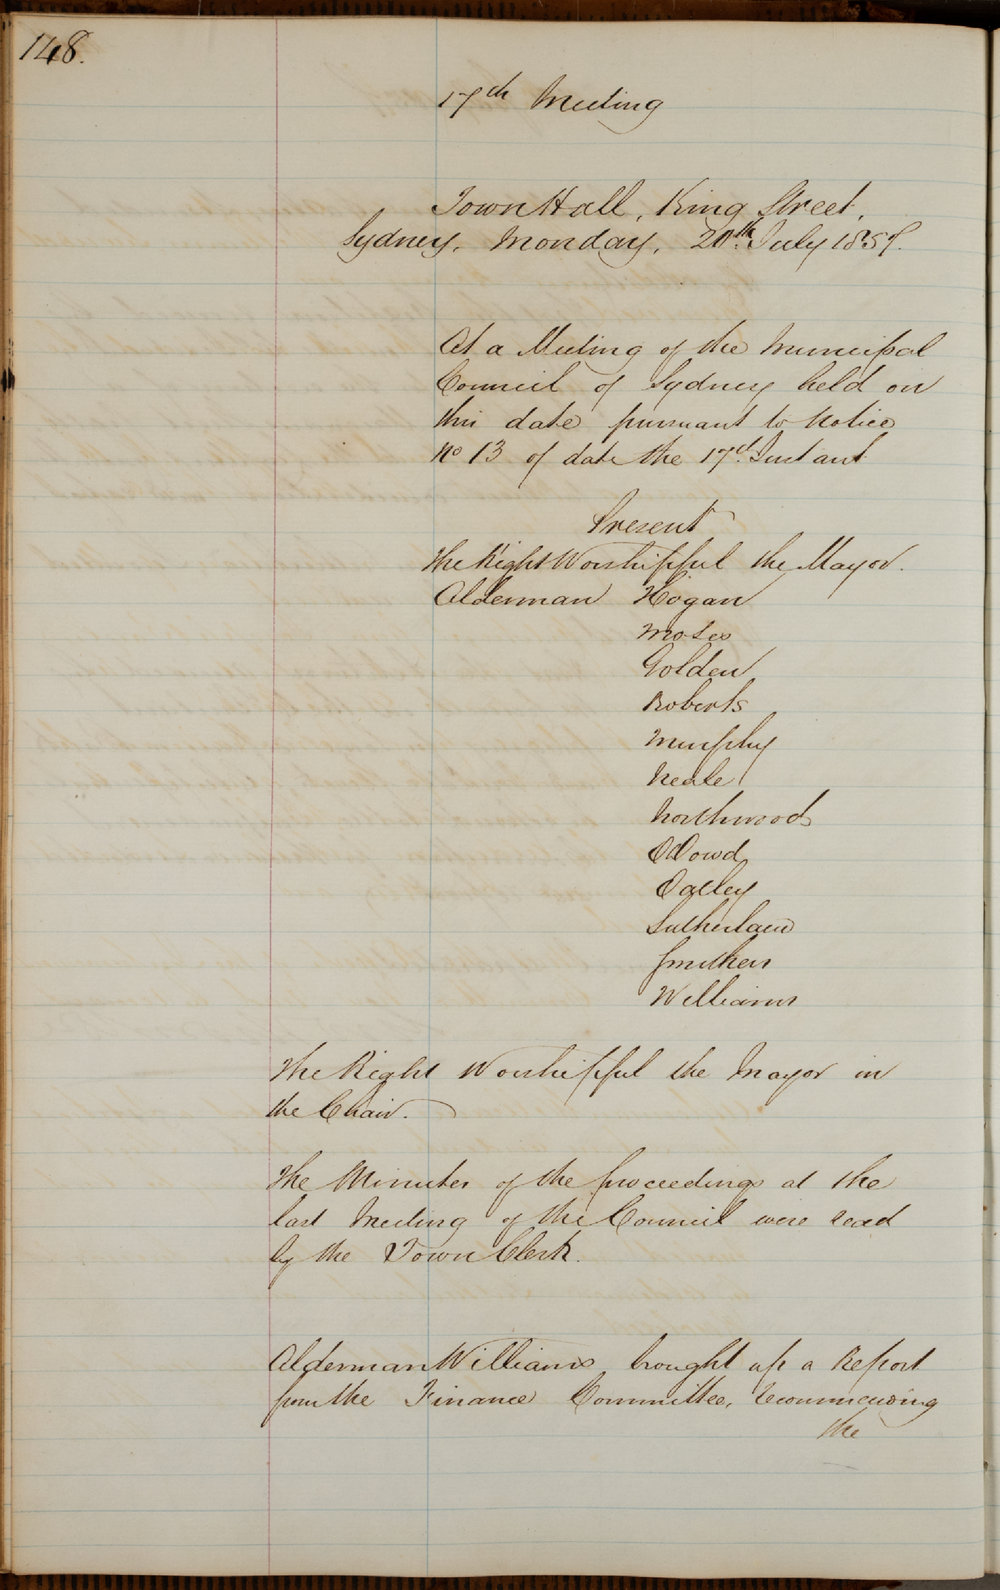 148.
17th Meeting
Town Hall, King Street,
Sydney, Monday, 20th July 1857.
At a Meeting of the Municipal
Council of Sydney held on
this date pursuant to Notice
No 13 of date the 17th Instant
Present
The Right Worshipful the Mayor.
Alderman Hogan
Moses
Golden
Roberts
Murphy
Neale
Northwood
O'Dowd
Oatley
Sutherland
Smithers
Williams
The Right Worshipful the Mayor in
the Chair.
The Minutes of the proceedings at the
last Meeting of the Council were read
by the Town Clerk.
Alderman Williams brought up a Report
from the Finance Committee, recommending
the